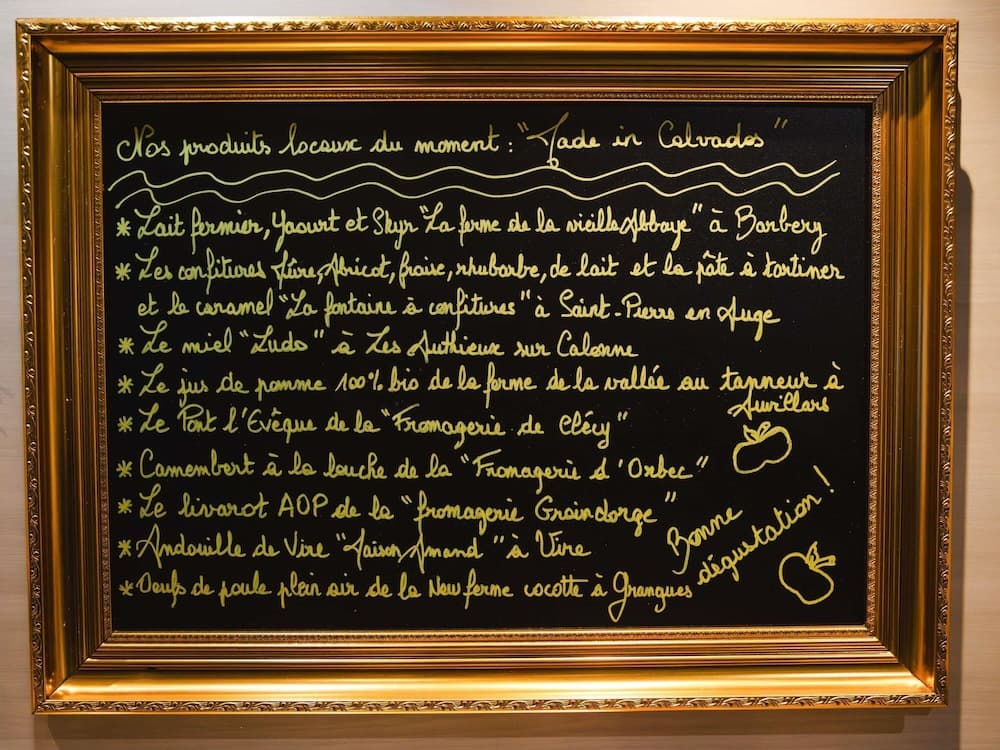 Nos produits locaux du moment : "Made in Calvados"
* Lait fermier, Yaourt et Skyr "La ferme de la vieille Abbaye" à Barbery
* Les confitures Mûre, Abricot, fraise, rhubarbe, de lait et la pâte à tartiner
et le caramel "La fontaine à confitures" à Saint-Pierre en Auge
* Le miel "Ludo" à Les Authieux sur Calonne
* Le jus de pomme 100% bio de la ferme de la vallée au tanneur à
Auvillars
* Le Pont l'Evêque de la "Fromagerie de Clécy"
* Camembert à la louche de la "Fromagerie d'Orbec"
* Le livarot AOP de la "fromagerie Graindorge"
* Andouille de Vire "Maison Amand" à Vire
* Oeufs de poule plein air de la New ferme cocotte à Grangues
Bonne
dégustation !